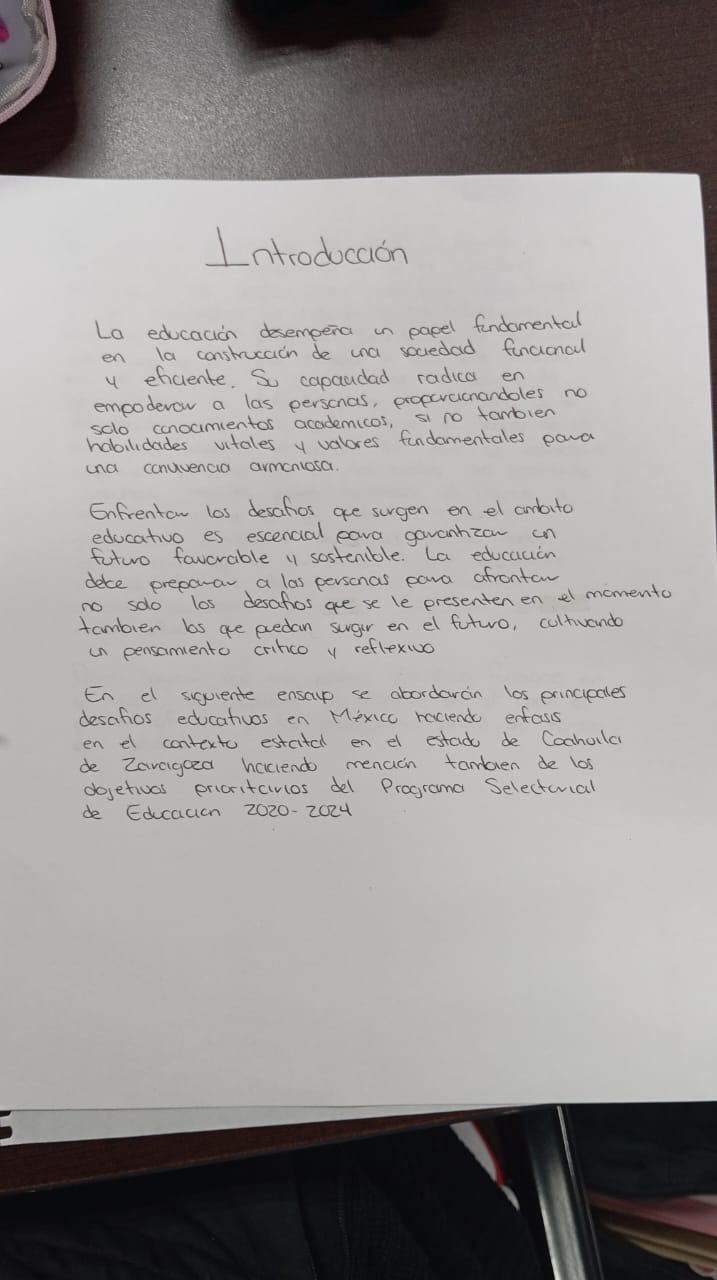 Introducción
La educación desempeña un papel fundamental
en la construcción de una sociedad funcional
y eficiente. Su capacidad radica en
empoderar a las personas, proporcionandoles no
solo conocimientos academicos, si no tambien
habilidades vitales y valores fundamentales para
una convivencia armoniosa.
Enfrentar los desafios que surgen en el ambito
educativo es escencial para garantizar un
futuro favorable y sostenible. La educación
debe preparar a las personas para afrontar
no solo los desafios que se le presenten en el momento
tambien los que puedan surgir en el futuro, cultivando
un pensamiento critico y reflexivo
En el siguiente ensayo se abordarán los principales
desafios educativos en México haciendo enfasis
en el contexto estatal en el estado de Coahuila
de Zaragoza haciendo mención tambien de los
objetivos prioritarios del Programa Selectorial
de Educación 2020-2024